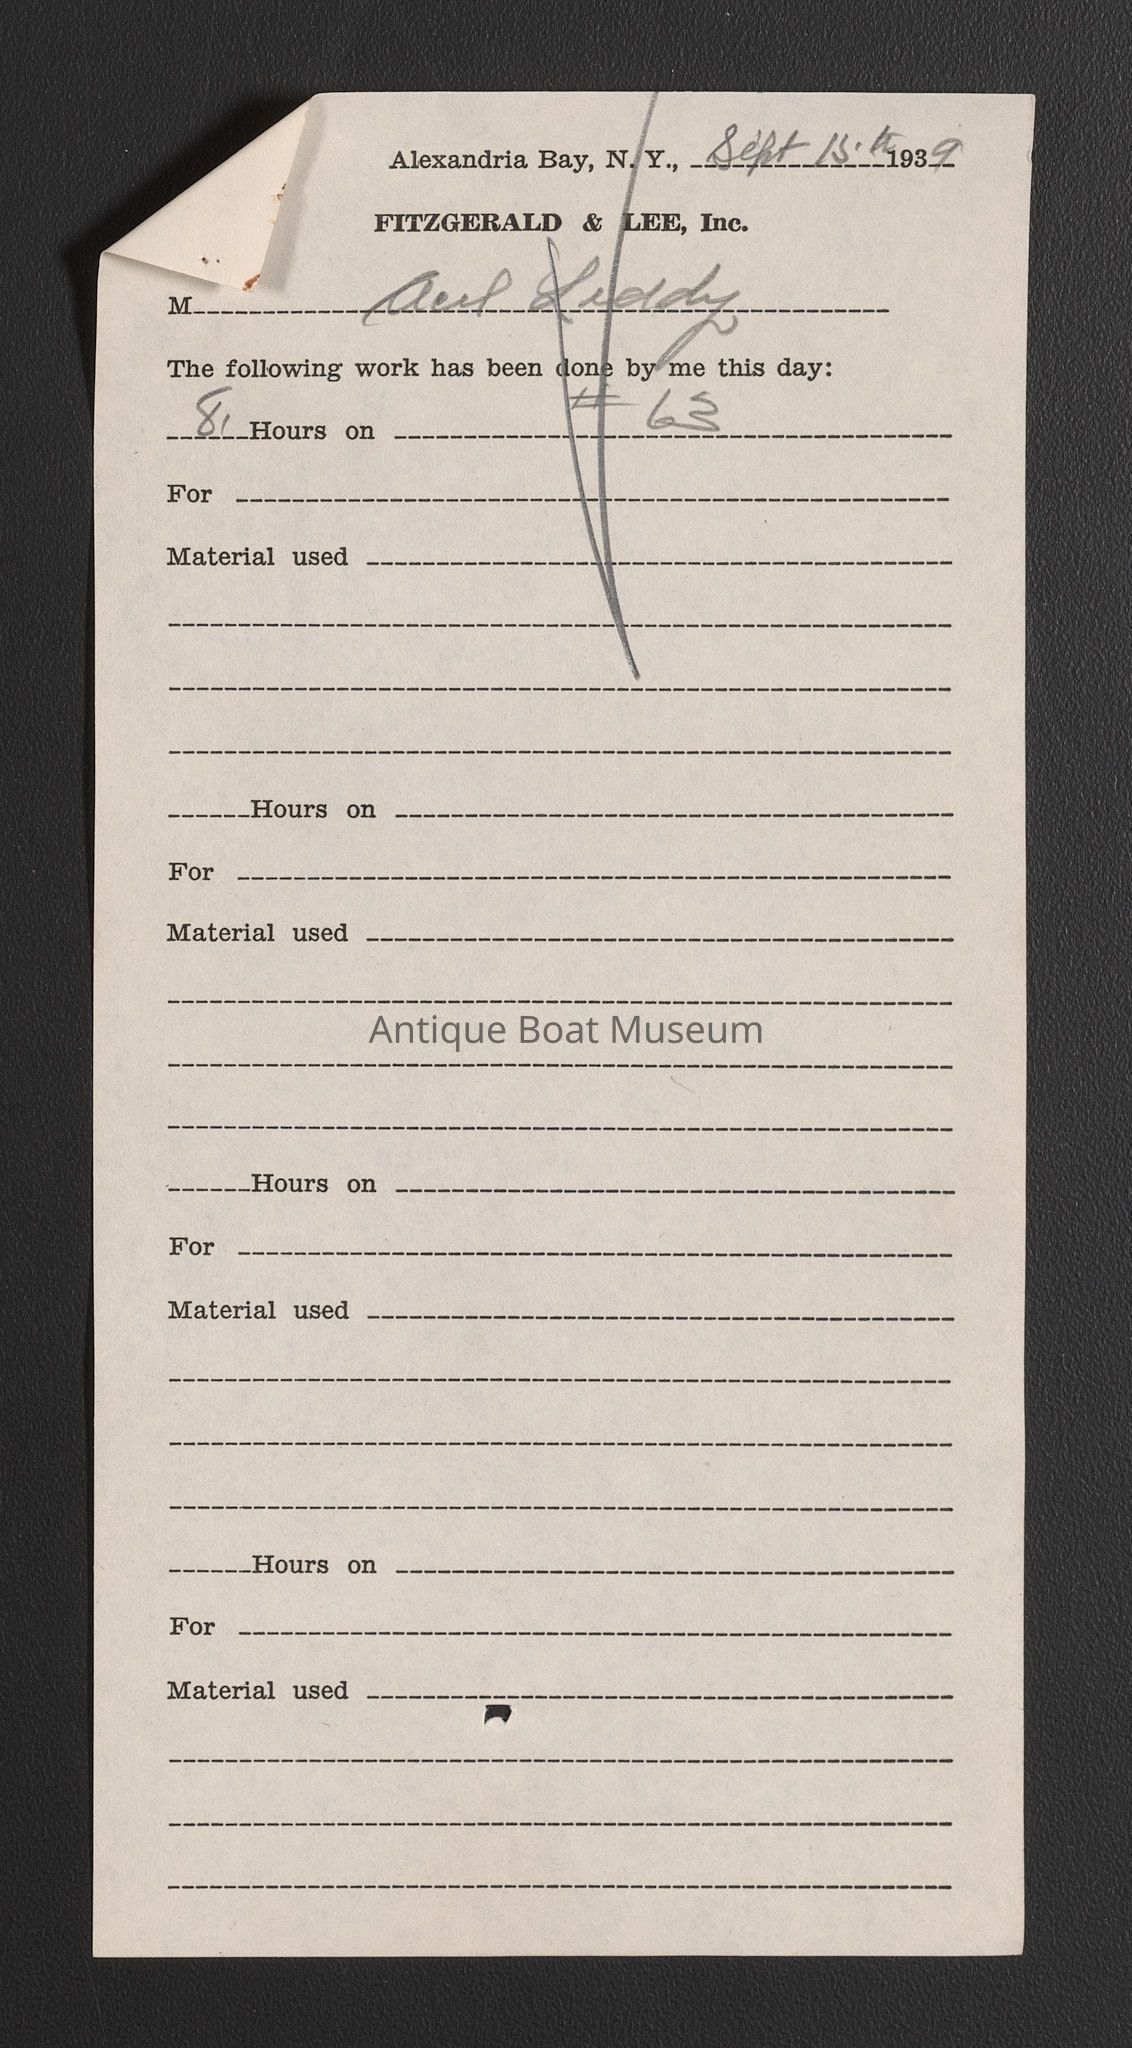 Alexandria Bay, N. Y., Sept 15.th 1939
FITZGERALD & LEE, Inc.
M Liddy
The following work has been done by me this day:
# 63
8 Hours on
For
Material used
Hours on
For
Material used
Antique Boat Museum
Hours on
For
Material used
Hours on
For
Material used